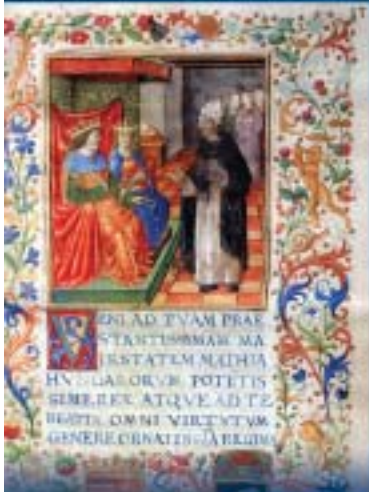 VENI AD TVAM PRAE
STANTISSIMAM MA
IESTATEM MATHIA
HVNGARORVM POTETIS
SIME REX ATQVE AD TE
BEATRIX OMNI VIRTVTVM
GENERE ORNATISSIA REGINA